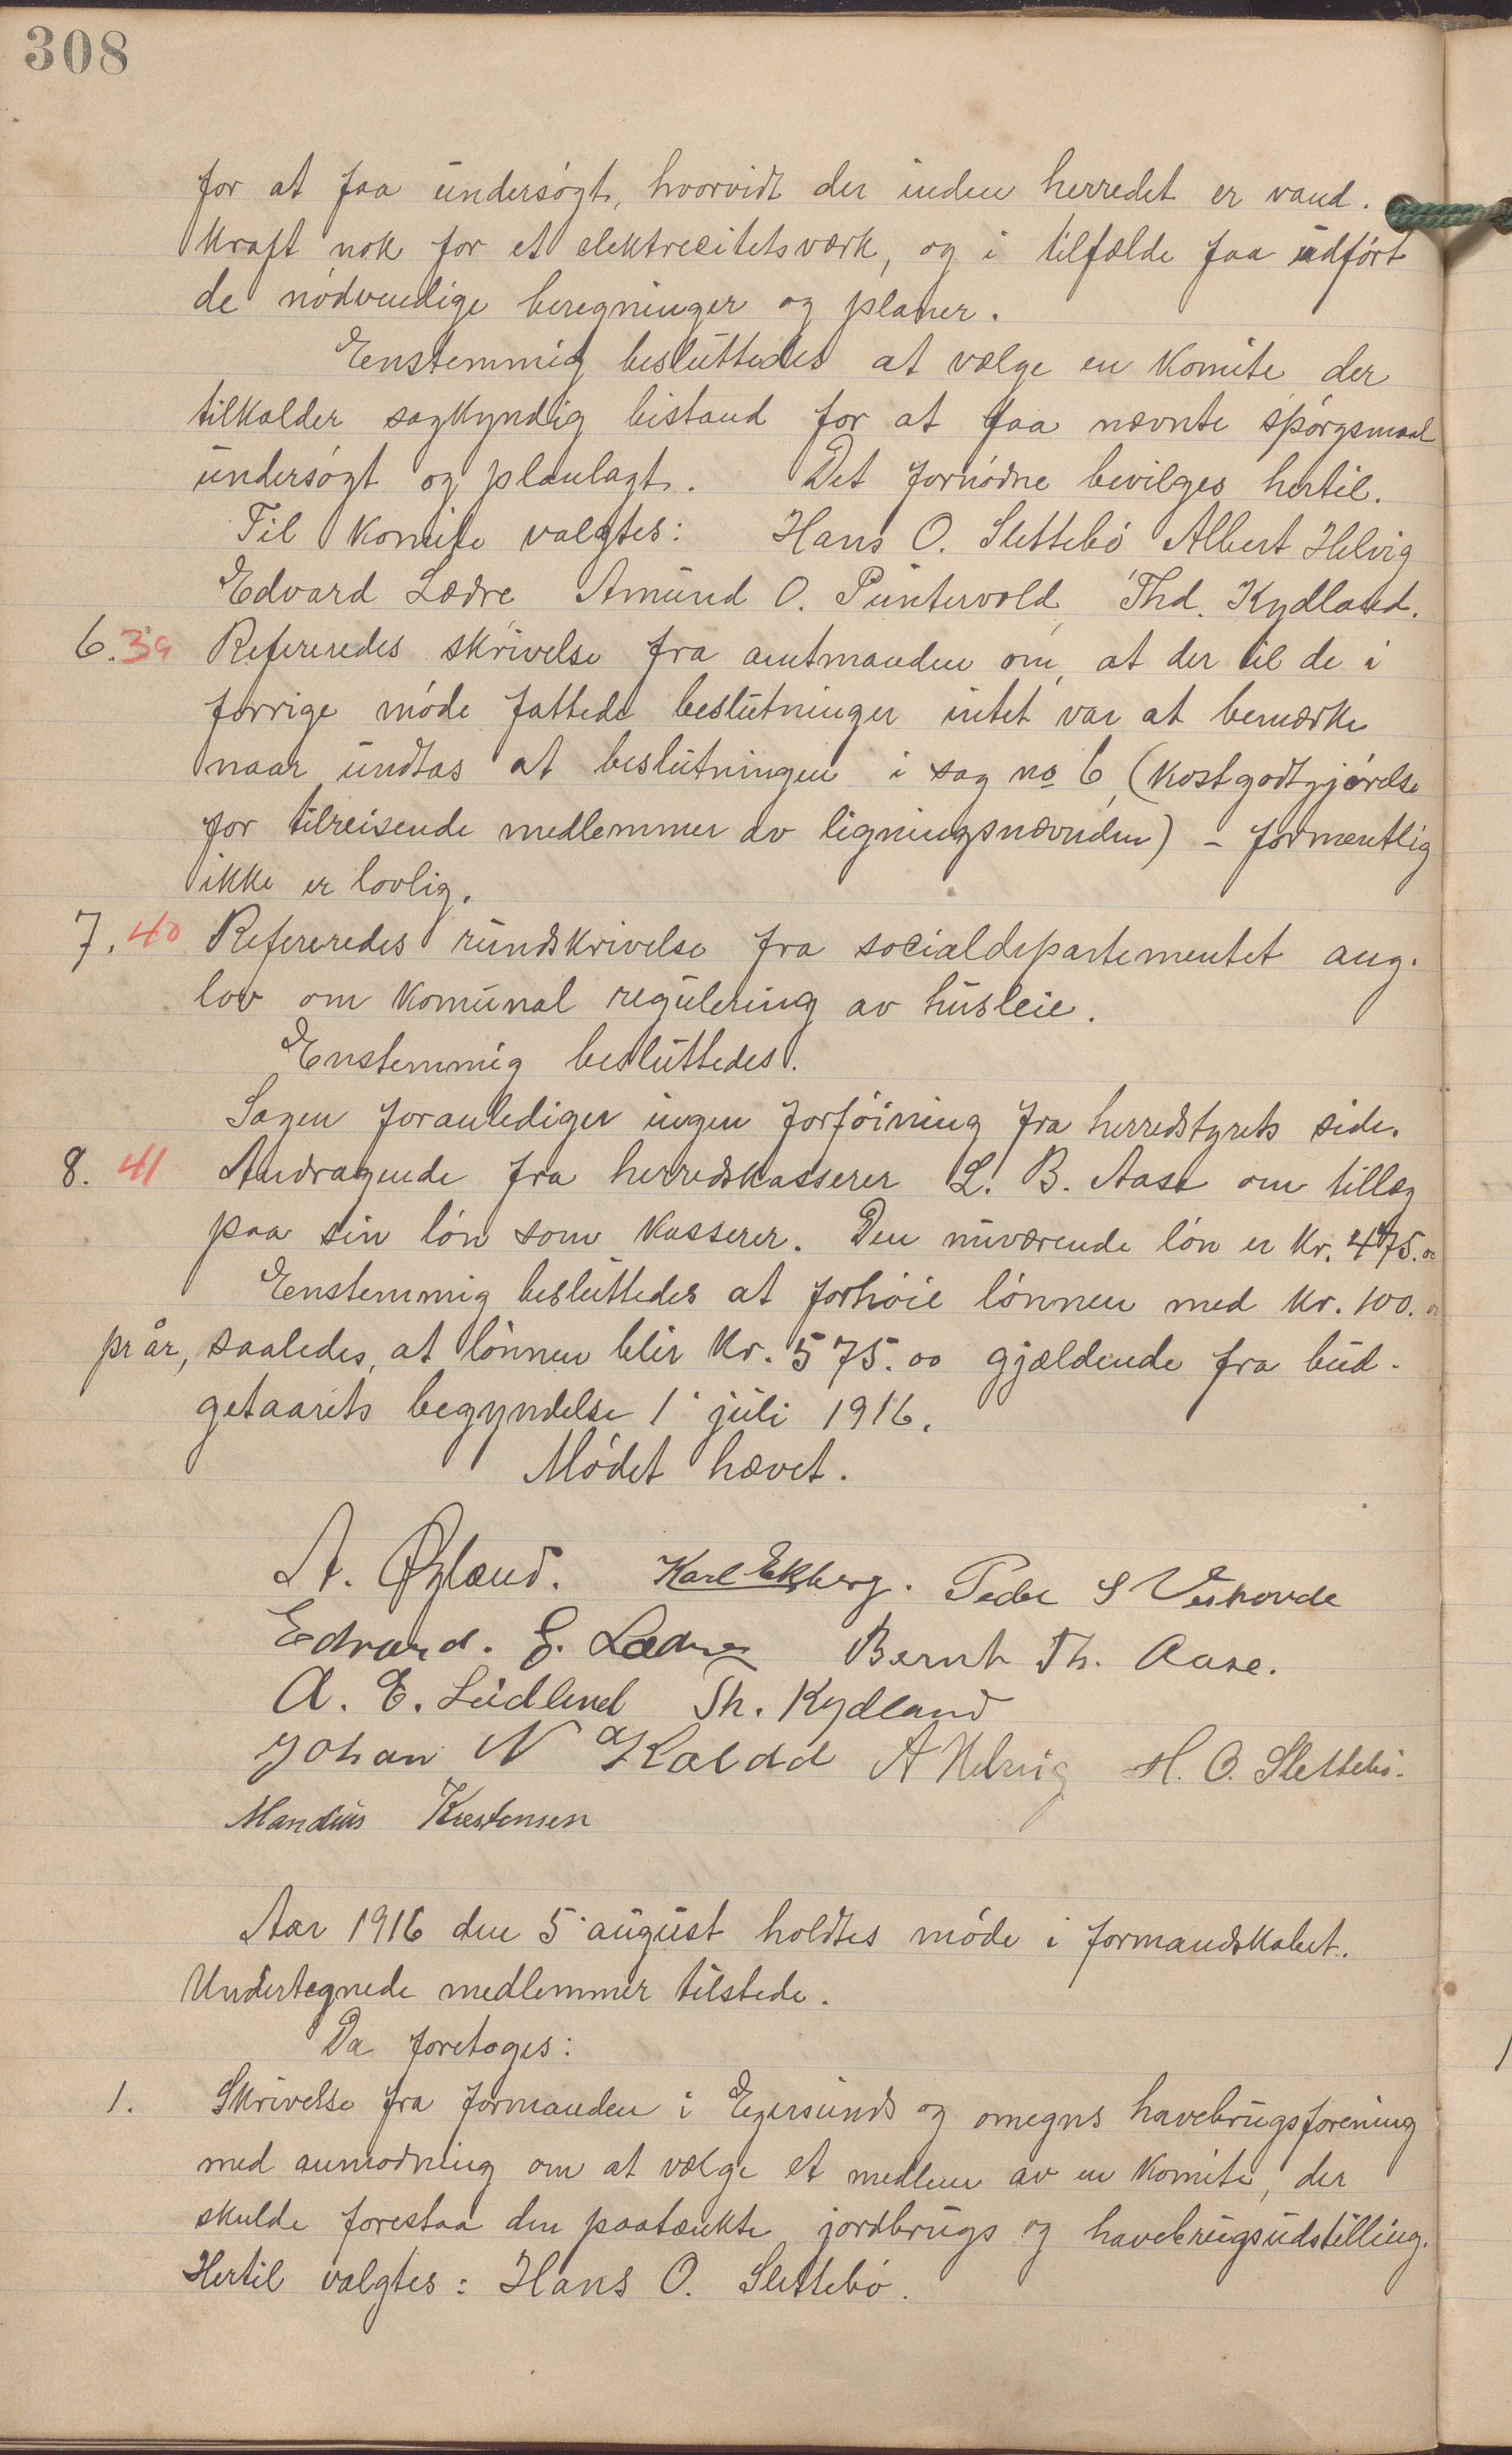 308
for at faa undersøgt, hvorvidt der inden herredet er vand-
kraft nok for et elektrecitetsværk, og i tilfælde faa udført
de nødvendige beregninger og planer.
Enstemmig besluttedes at vælge en komite der
tilkalder sagkyndig bistand for at faa nævnte spørgsmaal
undersøgt og planlagt. Det fornødne bevilges hertil.
Til komite valgtes: Hans O. Slettebø Albert Helvig
Edvard Lædre Amund O. Puntervold, Thd. Kydland.
6. 39 Refereredes skrivelse fra amtmanden om, at der til de i
forrige møde fattede beslutninger intet var at bemærke
naar undtas at beslutningen i sag no 6, (kostgodtgjørelse
for tilreisende medlemmer av ligningsnævnden) - formentlig
ikke er lovlig.
7. 40 Refereredes rundskrivelse fra socialdepartementet ang.
lov om komunal regulering av husleie.
Enstemmig besluttedes.
Sagen foranlediger ingen forføining fra herredstyrets side.
8. 41 Andragende fra herredskasserer L. B. Aase om tillæg
paa sin løn som kasserer. Den nuværende løn er kr. 475.00
Enstemmig besluttedes at forhøie lønnen med kr. 100.00
pr år, saaledes, at lønnen blir kr. 575.00 gjældende fra bud-
getaarets begyndelse 1. juli 1916.
Mødet hævet.
A. Øgland. Karl Ekberg. Peder S Veshovde
Edvard. E. Lædre Bernt Th. Aase.
A. E. Leidland Th. Kydland
Johan N Skaldd A Helvig H. O. Slettebø.
Mandius Kristensen
Aar 1916 den 5. august holdtes møde i formandskabet.
Undertegnede medlemmer tilstede.
Da foretoges:
1. Skrivelse fra formanden i Egersunds og omegns havebrugsforening
med anmodning om at vælge et medlem av en komite, der
skulde forestaa den paatænkte jordbrugs og havebrugsudstilling.
Hertil valgtes: Hans O. Slettebø.